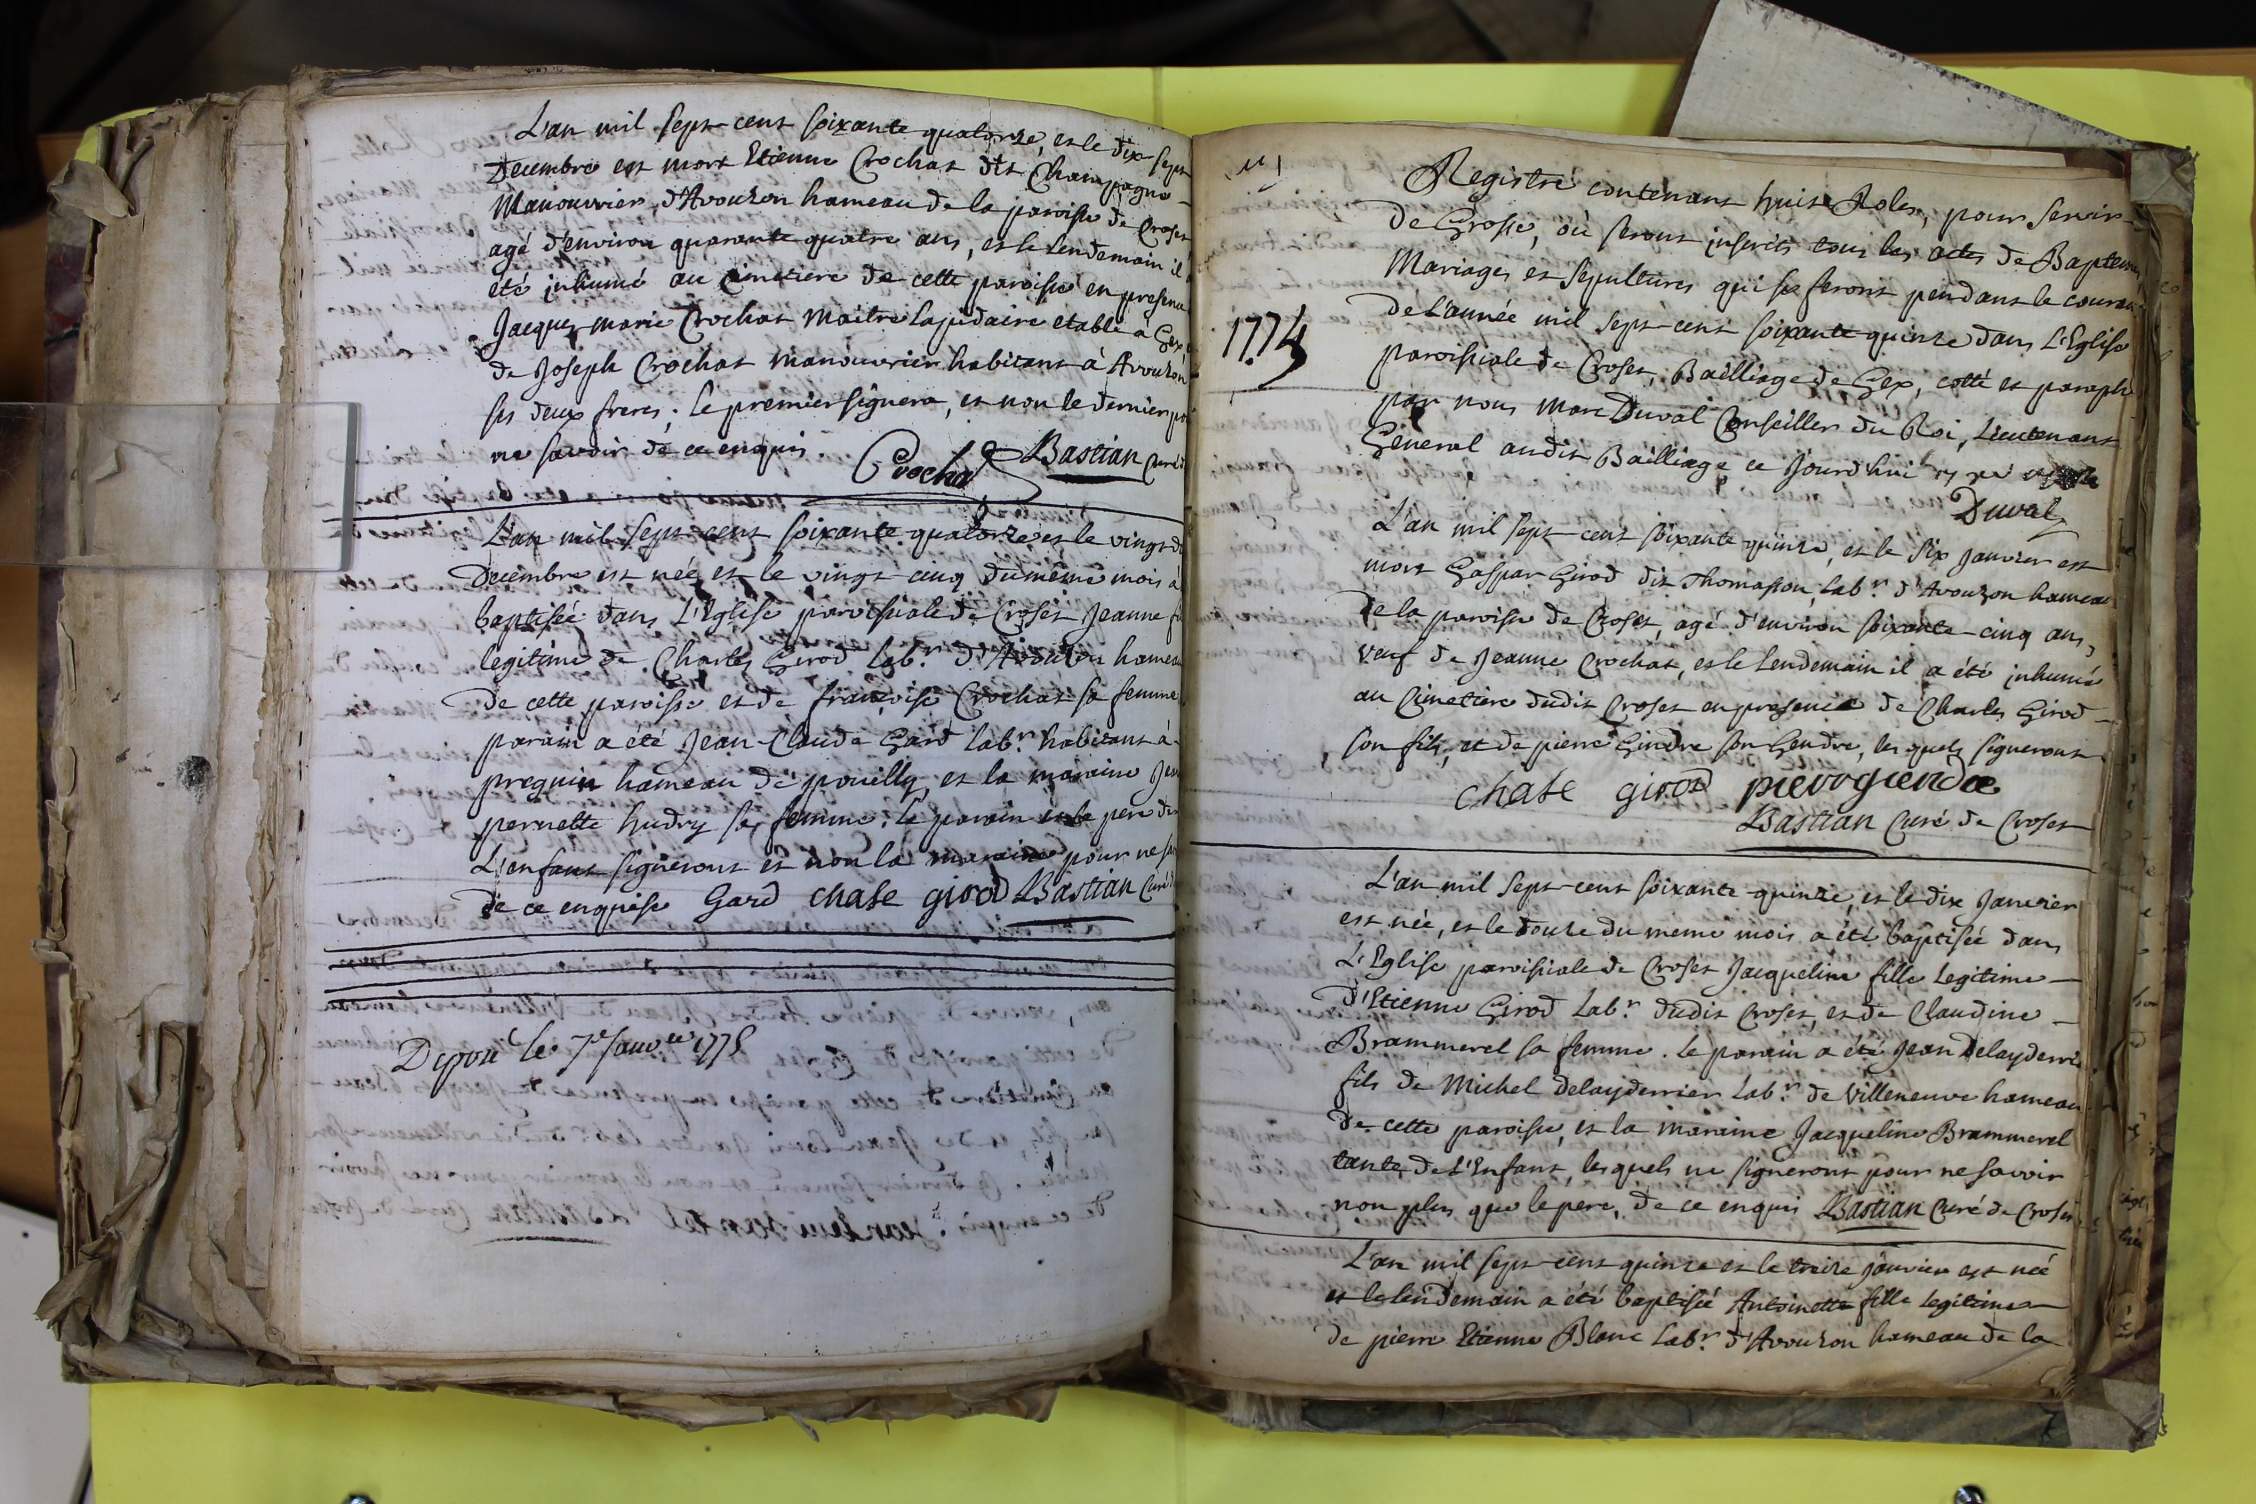 L'an mil sept-cent soixante quatorze, et le dix-sept
Decembre est mort Etienne Crochat dit Champagne
Manouvrier, d'Avouzon hameau de la paroisse de Croset
agé d'environ quarante quatre ans, et le Lendemain il
été inhumé au Cimetiere de cette paroisse en presence
Jacques-marie Crochat Maitre Lapidaire etabli à Gex,
de Joseph Crochat manouvrier habitant à Avouzon
ses deux freres; le premier signera, et non le dernier pour
ne savoir de ce enquis.
Crochat Bastian Curé d
L'an mil sept-cent soixante quatorze et le vingt
Decembre est née, et le vingt-cinq du même mois à
baptisée dans L'Eglise paroissiale de Croset Jeanne fi
legitime de Charles Girod Lab.r D'Avouzon hameau
de cette paroisse et de françoise Crochat sa femme
parain a été Jean-Claude Gard Lab.r habitant à
preguin hameau de pouilly, et la maraine Jea
pernette hudry sa femme. le parain et le pere de
L'enfant signeront et non la maraine pour ne sa
de ce enquise Gard chale girod Bastian Curé d
Deposé le 7e Janv.er 1775
Registre contenant huit Roles, pour servir
de Grosse, où seront inscrits tous les actes de Baptemes
Mariages et Sepultures qui se feront pendant le courant
de L'année mil sept-cent soixante quinze dans L'Eglise
1774
paroissiale de Croset, Bailliage de Gex, cotté et paraphé
par nous Marc Duval Conseiller du Roi, Lieutenant
General audit Bailliage ce Jourd'hui
Duval
L'an mil sept-cent soixante quinze, et le six Janvier est
mort Gaspar Girod dit Thomasson, Lab.r d'Avouzon hameau
de la paroisse de Croset, agé d'environ soixante-cinq ans,
veuf de Jeanne Crochat, et le Lendemain il a été inhumé
au Cimetiere dudit Croset en presence de Charles Girod
son fils, et de pierre Gindre son Gendre, lesquels signeront
chale girod pierre giendre
Bastian Curé de Croset
L'an mil sept-cent soixante-quinze, et le dix Janvier
est née, et le douze du même mois a été baptisée dans
L'Eglise paroissiale de Croset Jacqueline fille Legitime
d'Etienne Girod Lab.r dudit Croset, et de Claudine
Brammerel sa femme. le parain a été Jean Delayderrie
fils de Michel Delayderrier Lab.r de Villeneuve hameau
de cette paroisse, et la maraine Jacqueline Brammerel
tante de L'Enfant, lesquels ne signeront pour ne savoir
non plus que le pere, de ce enquis Bastian Curé de Croset
L'an mil sept-cent quinze et le treize janvier est née
et le lendemain a été baptisée Antoinette fille legitime
de pierre Etienne Blanc Lab.r d'Avouzon hameau de la